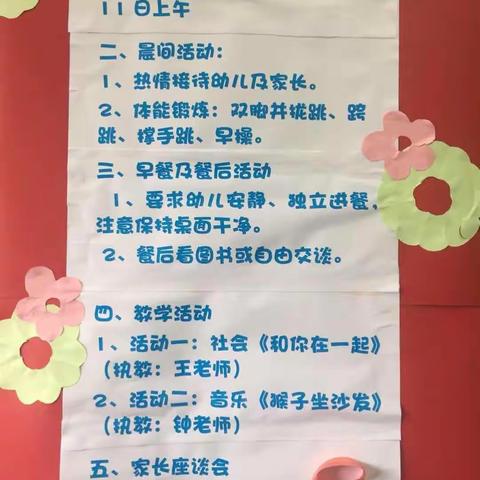 11日上午
二、晨间活动：
1、热情接待幼儿及家长。
2、体能锻炼：双脚并拢跳、跨
跳、撑手跳、早操。
三、早餐及餐后活动
1、要求幼儿安静、独立进餐、
注意保持桌面干净。
2、餐后看图书或自由交谈。
四、教学活动
1、活动一：社会《和你在一起》
（执教：王老师）
2、活动二：音乐《猴子坐沙发》
（执教：钟老师）
五、家长座谈会